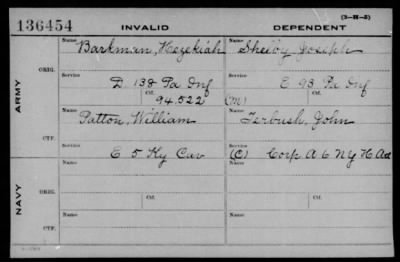 136454
INVALID
DEPENDENT
(3-H-5)
ARMY
ORIG.
Name
Barkman, Hezekiah
Name
Sheeby, Joseph
Service
D 138 Pa Inf
Ctf.
94.522
Service
E 93 Pa Inf
(M)
Ctf.
CTF.
Name
Patton, William
Name
Terbush, John
Service
E 5 Ky Cav
Service
(C) Corp A 6 N Y H Art
NAVY
ORIG.
Name
Ctf.
Name
Ctf.
CTF.
Name
Name